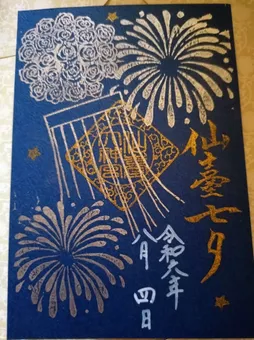 仙臺七夕
令和六年
八月四日